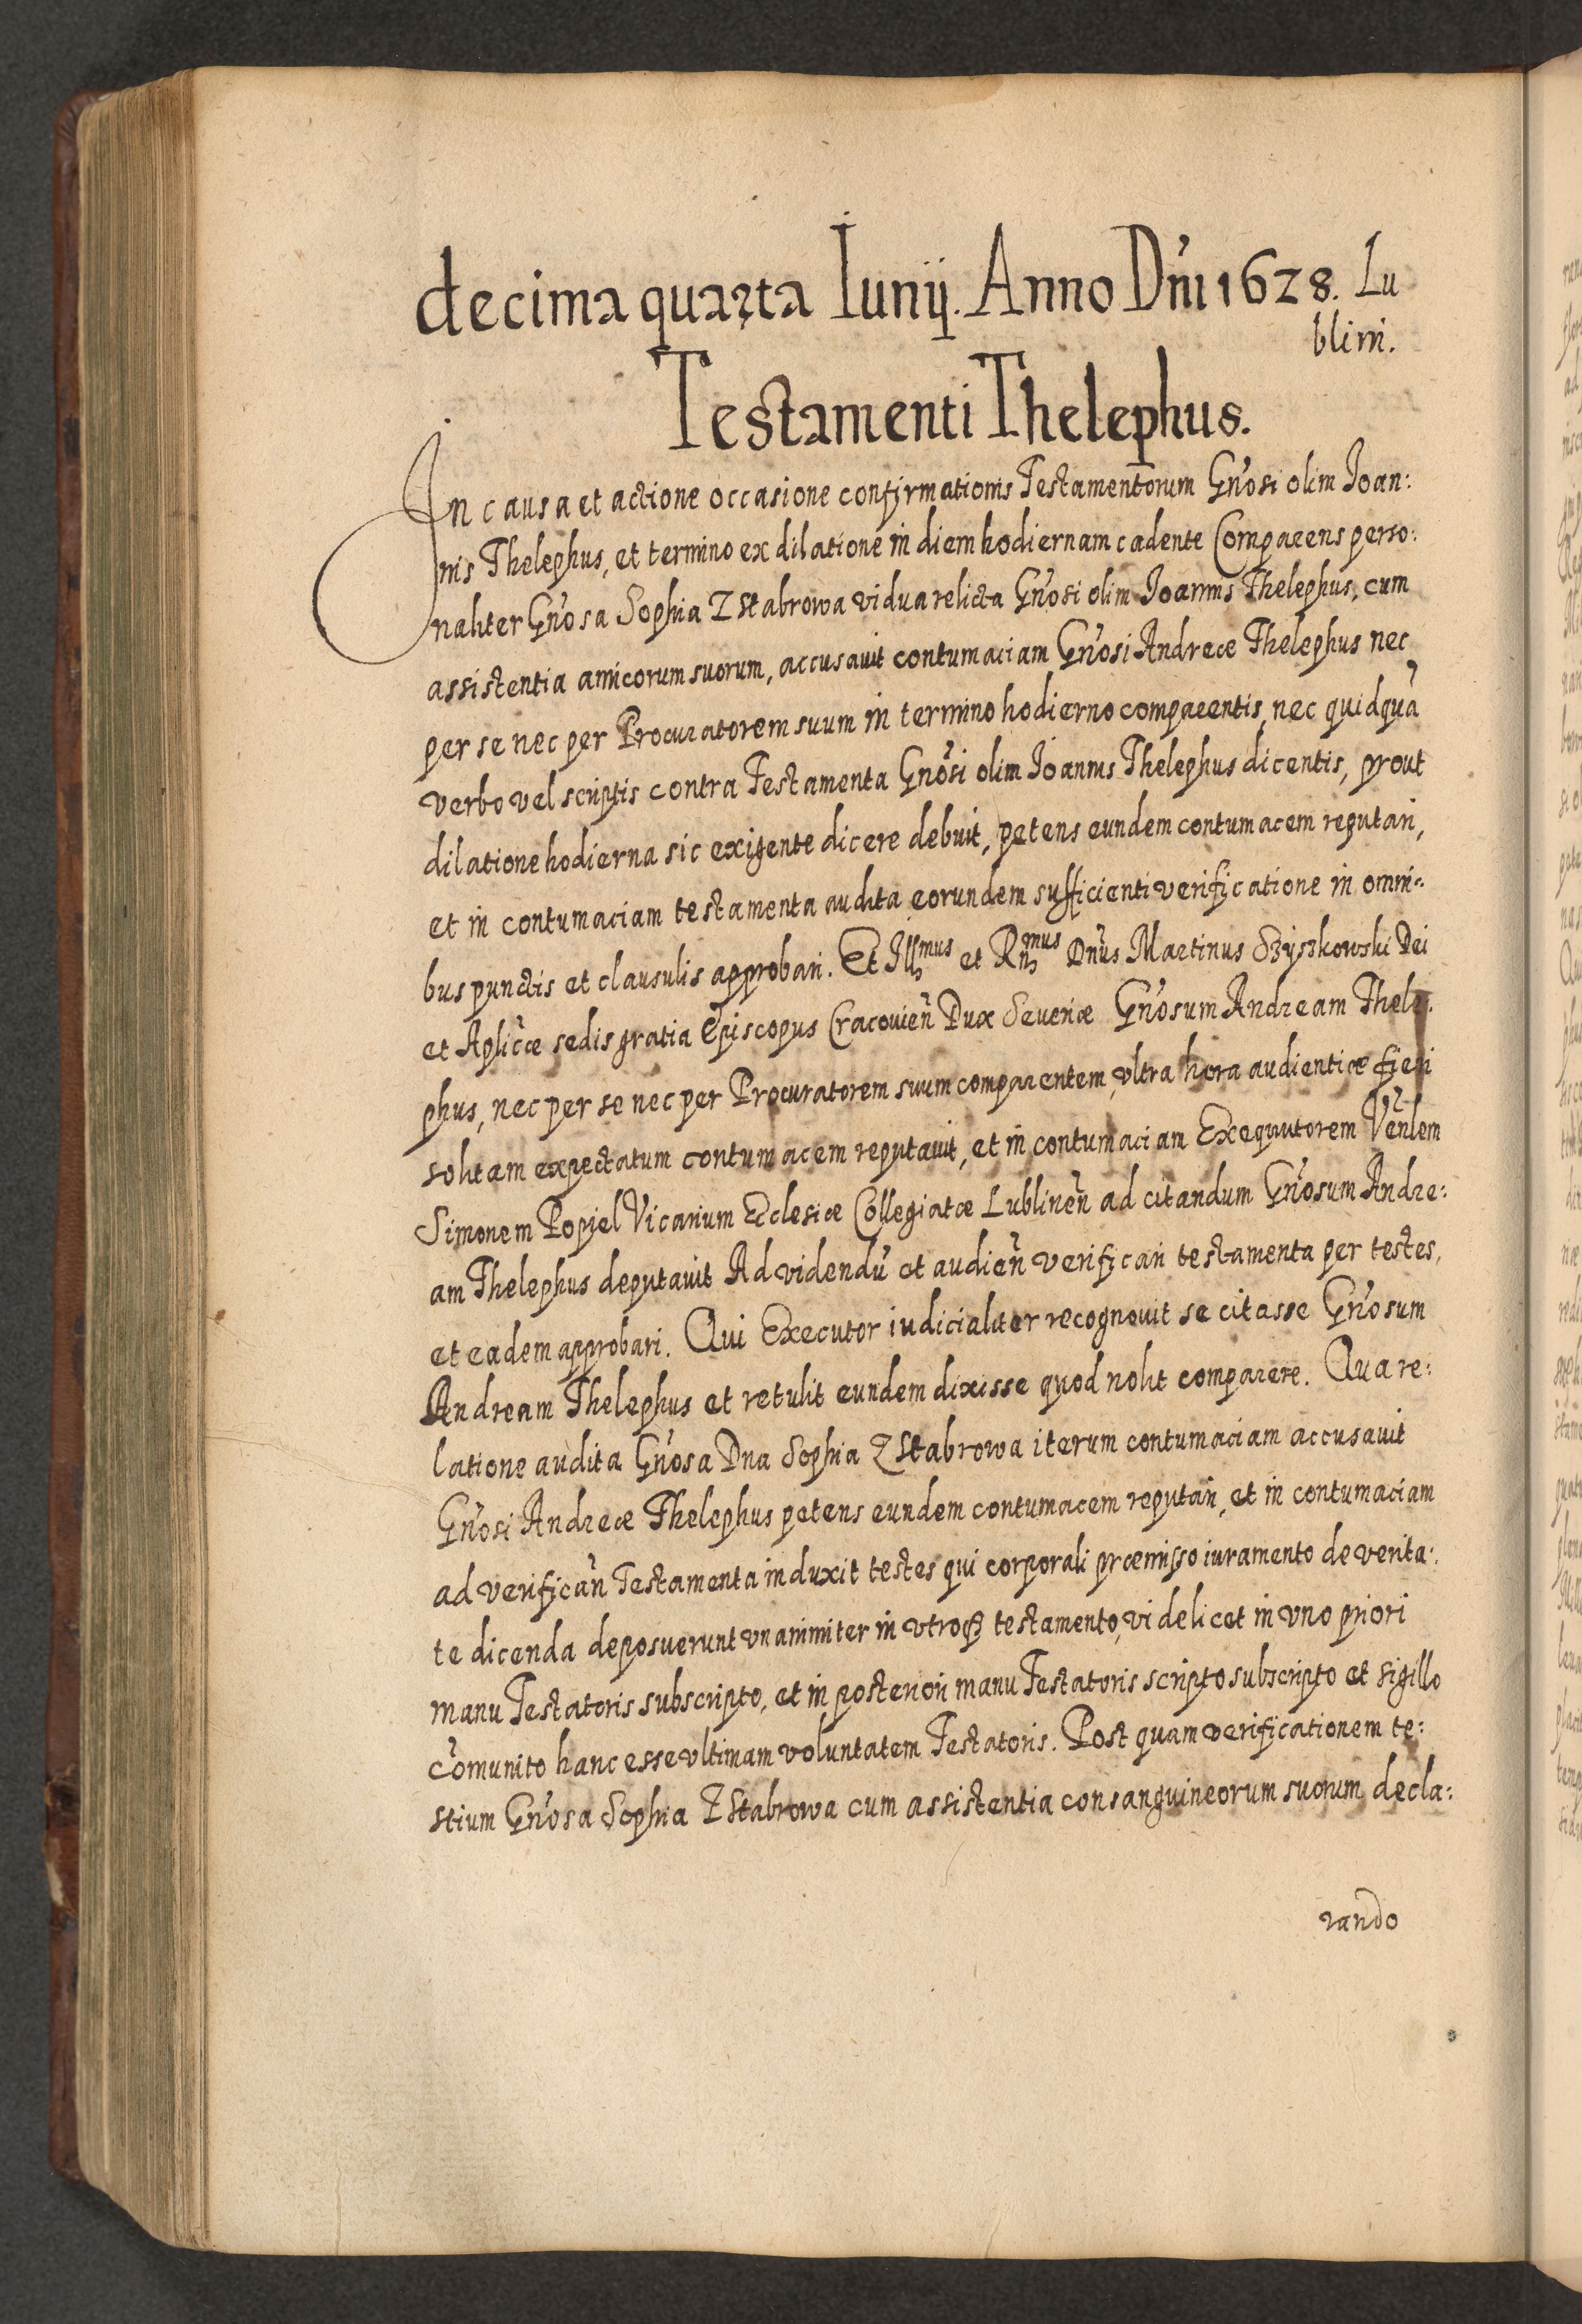 decima quarta Iunij. Anno Dńi 1628. Lu
blini.
Testamenti Thelephus.
In causa et actione occasione confirmationis Testamentorum Gńosi olim Ioan:
nis Thelephus, et termino ex dilatione in diem hodiernam cadente Comparens perso:
naliter Gńosa Sophia Z Stabrowa vidua relicta Gńosi olim Ioannis Thelephus, cum
assistentia amicorum suorum, accusavit contumaciam Gńosi Andreæ Thelephus nec
per se nec per Procuratorem suum in termino hodierno comparentis, nec quidquã
verbo vel scriptis contra Testamenta Gńosi olim Ioannis Thelephus dicentis, prout
dilatione hodierna sic exigente dicere debuit, petens eundem contumacem reputari,
et in contumaciam testamenta audita eorundem sufficienti verificatione in omni:
bus punctis et clausulis approbari. Et Illmus et Rnmus Dnũs Martinus Szyszkowski Dei
et Aplicæ sedis gratia Episcopus Cracovień Dux Severiæ Gńosum Andream Thele:
phus, nec per se nec per Procuratorem suum comparentem, vltra hora audientiæ fieri
solitam expectatum contumacem reputavit, et in contumaciam Exequutorem Veńlem
Simonem Popiel Vicarium Ecclesiæ Collegiatæ Lublineń ad citandum Gńosum Andre:
am Thelephus deputavit Ad videndũ et audień verificari testamenta per testes,
et eadem approbari. Qui Executor iudicialiter recognovit se citasse Gńosum
Andream Thelephus et retulit eundem dixisse quod nolit comparere. Qua re:
latione audita Gńosa Dna Sophia Z Stabrowa iterum contumaciam accusavit
Gńosi Andreæ Thelephus petens eundem contumacem reputari, et in contumaciam
ad verificań Testamenta induxit testes qui corporali præmisso iuramento de verita:
te dicenda deposuerunt vnanimiter in vtroqꝫ testamento, videlicet in vno priori
manu Testatoris subscripto, et in posteriori manu Testatoris scripto subscripto et sigillo
cõmunito hanc esse vltimam voluntatem Testatoris. Post quam verificationem te:
stium Gńosa Sophia Z Stabrowa cum assistentia consanguineorum suorum decla:
rando